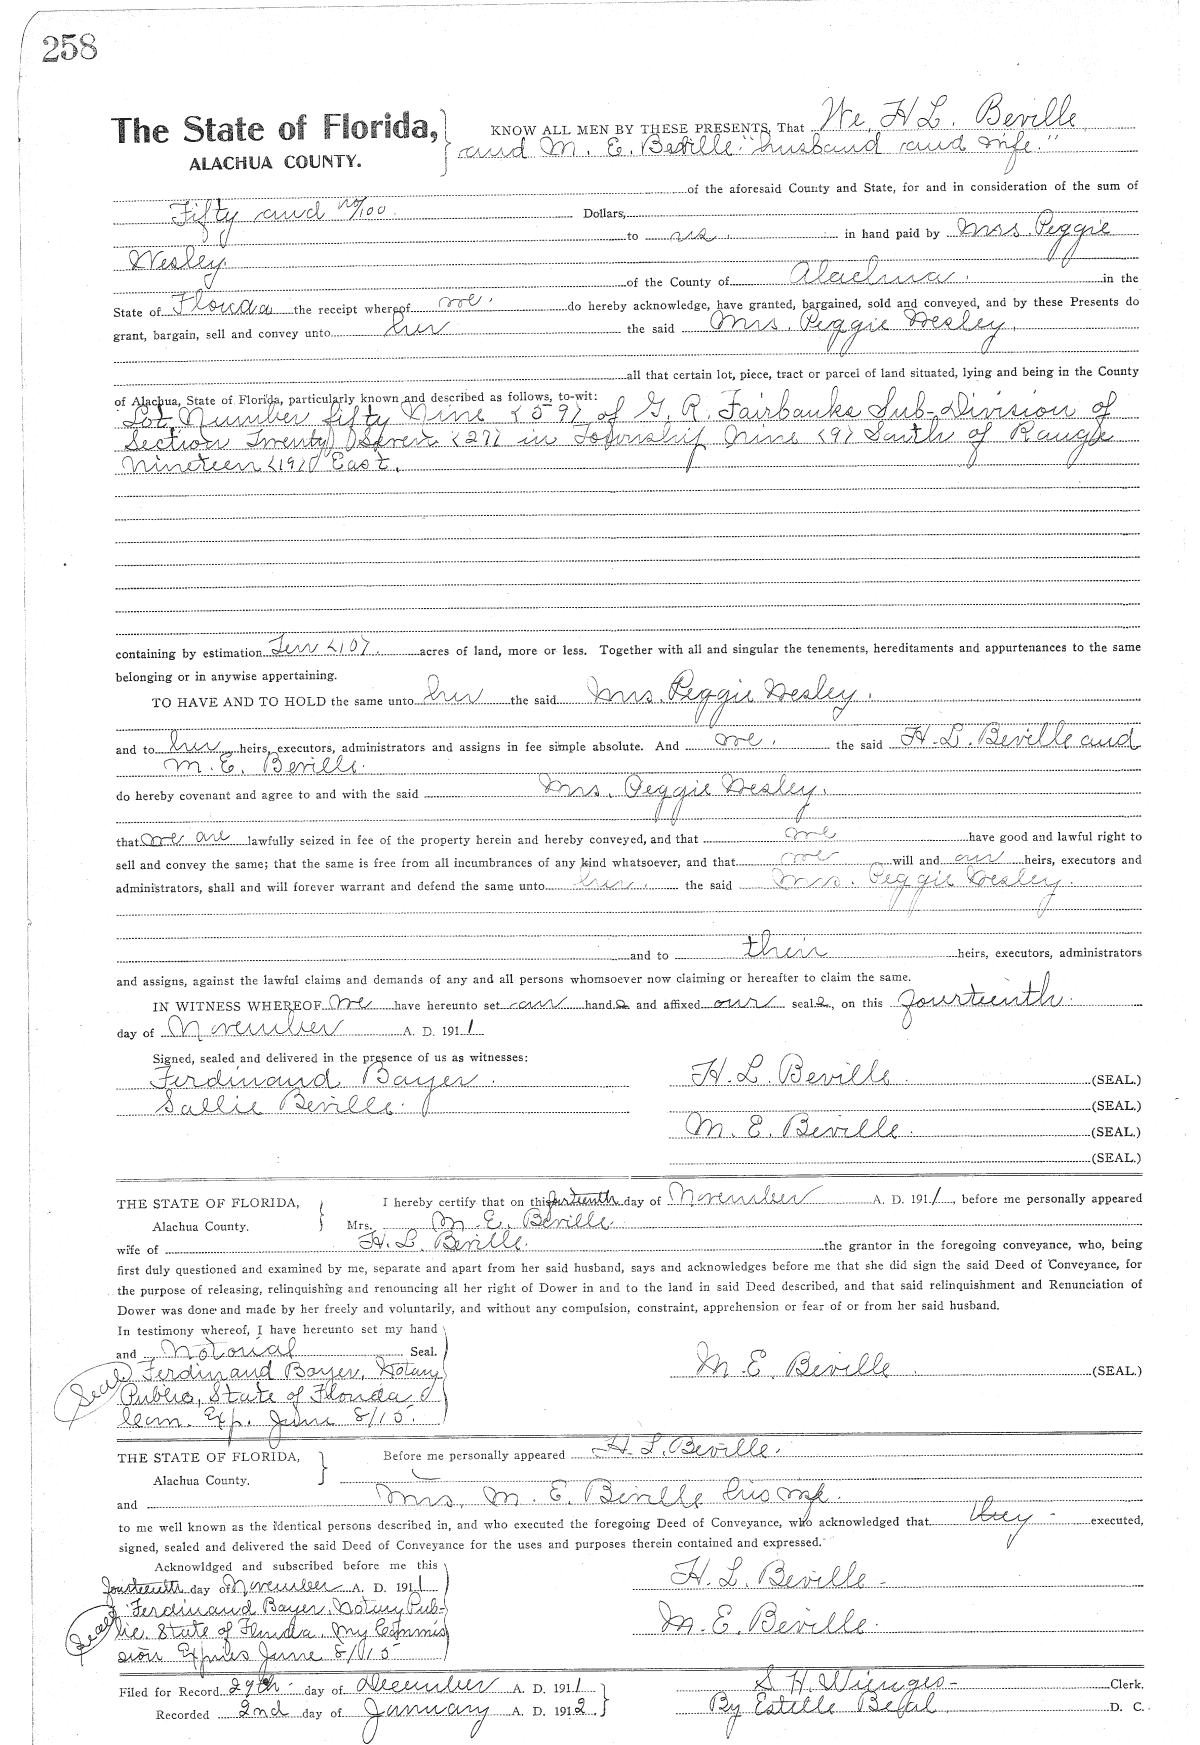 258
The State of Florida, KNOW ALL MEN BY THESE PRESENTS, That We, H L. Beville
ALACHUA COUNTY. and M. E. Beville "husband and wife."
of the aforesaid County and State, for and in consideration of the sum of
Fifty and no/100 Dollars,
to us. in hand paid by Mrs. Peggie
Wesley. of the County of Alachua. in the
State of Florida the receipt whereof we. do hereby acknowledge, have granted, bargained, sold and conveyed, and by these Presents do
grant, bargain, sell and convey unto her the said Mrs. Peggie Wesley.
all that certain lot, piece, tract or parcel of land situated, lying and being in the County
of Alachua, State of Florida, particularly known and described as follows, to-wit:
Lot Number fifty Nine <59> of G. R. Fairbanks Sub-Division of
Section Twenty Seven <27> in Township Nine <9> South of Raugle
Nineteen <19> East.
containing by estimation Ten <10>. acres of land, more or less. Together with all and singular the tenements, hereditaments and appurtenances to the same
belonging or in anywise appertaining.
TO HAVE AND TO HOLD the same unto her the said Mrs. Peggie Wesley.
and to her heirs, executors, administrators and assigns in fee simple absolute. And we. the said H. L. Beville and
M. E. Beville.
do hereby covenant and agree to and with the said Mrs. Peggie Wesley.
that we are lawfully seized in fee of the property herein and hereby conveyed, and that we have good and lawful right to
sell and convey the same; that the same is free from all incumbrances of any kind whatsoever, and that we will and our heirs, executors and
administrators, shall and will forever warrant and defend the same unto her. the said Mrs. Peggie Wesley.
and to their heirs, executors, administrators
and assigns, against the lawful claims and demands of any and all persons whomsoever now claiming or hereafter to claim the same.
IN WITNESS WHEREOF We have hereunto set our hands and affixed our seals, on this fourteenth.
day of November A. D. 1911
Signed, sealed and delivered in the presence of us as witnesses:
Ferdinand Bayer. H. L. Beville. (SEAL.)
Sallie Beville. (SEAL.)
M. E. Beville. (SEAL.)
(SEAL.)
THE STATE OF FLORIDA, I hereby certify that on this fourteenth day of November A. D. 1911, before me personally appeared
Alachua County. Mrs. M. E. Beville.
wife of H. L. Beville. the grantor in the foregoing conveyance, who, being
first duly questioned and examined by me, separate and apart from her said husband, says and acknowledges before me that she did sign the said Deed of Conveyance, for
the purpose of releasing, relinquishing and renouncing all her right of Dower in and to the land in said Deed described, and that said relinquishment and Renunciation of
Dower was done and made by her freely and voluntarily, and without any compulsion, constraint, apprehension or fear of or from her said husband.
In testimony whereof, I have hereunto set my hand
and Notorial Seal.
Seal Ferdinand Bayer, Notary M. E. Beville (SEAL.)
Public, State of Florida
Com. Exp. June 8/15.
THE STATE OF FLORIDA, Before me personally appeared H. L. Beville.
Alachua County.
and Mrs. M. E. Beville his wife.
to me well known as the identical persons described in, and who executed the foregoing Deed of Conveyance, who acknowledged that they - executed,
signed, sealed and delivered the said Deed of Conveyance for the uses and purposes therein contained and expressed.
Acknowldged and subscribed before me this
fourteenth day of November A. D. 1911 H. L. Beville -
Seal Ferdinand Bayer. Notary Pub-
lic. State of Florida. My Commis M. E. Beville.
sion Expires June 8/15
Filed for Record 29th. day of December A. D. 1911 S. H. Wienges - Clerk.
Recorded 2nd day of January A. D. 1912. By Estelle D. C.